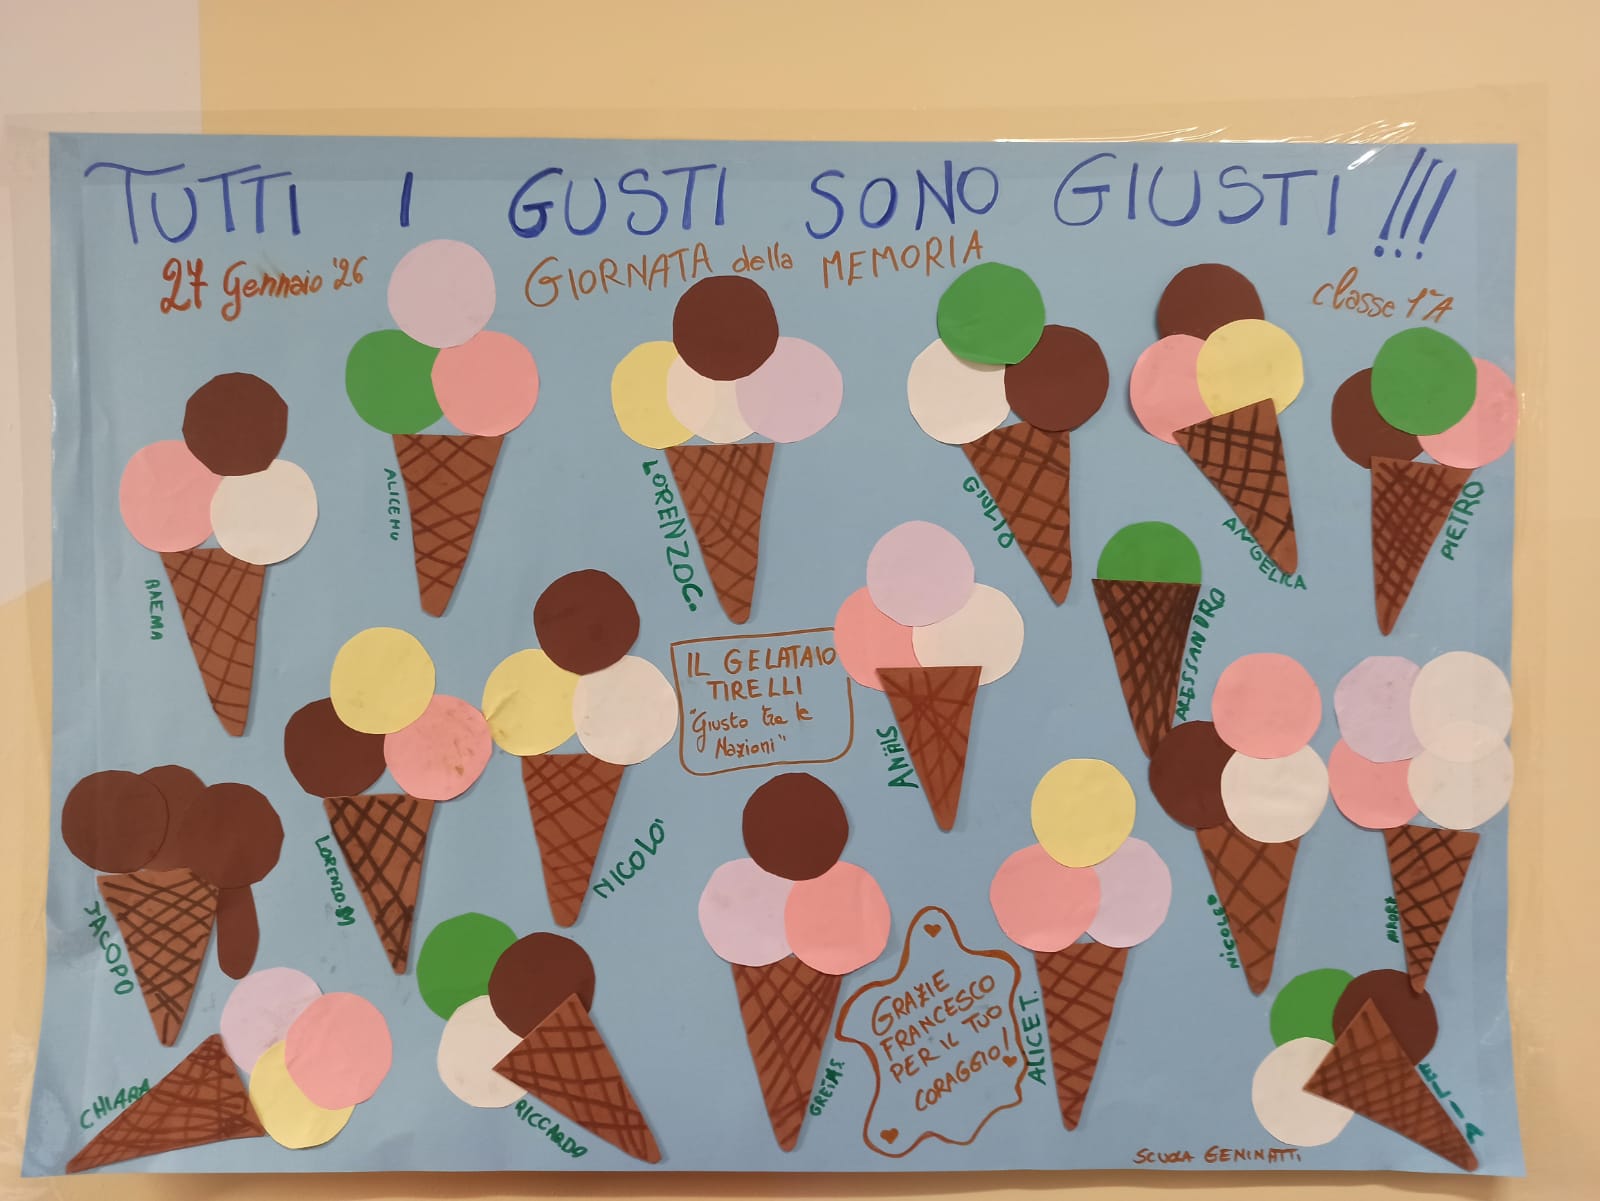 TUTTI I GUSTI SONO GIUSTI!!!
27 Gennaio '26
GIORNATA della MEMORIA
classe 1ªA
RAEMA
ALICE MU
LORENZO C.
GIULIO
ANGELICA
PIETRO
ALESSANDRO
IL GELATAIO
TIRELLI
"Giusto tra le
Nazioni"
ANAÏS
JACOPO
LORENZO.M
NICOLO'
NICOLE
AURORA
CHIARA
RICCARDO
GRETA S.
GRAZIE
FRANCESCO
PER IL TUO
CORAGGIO!
ALICE T.
ELIA
SCUOLA GENINATTI